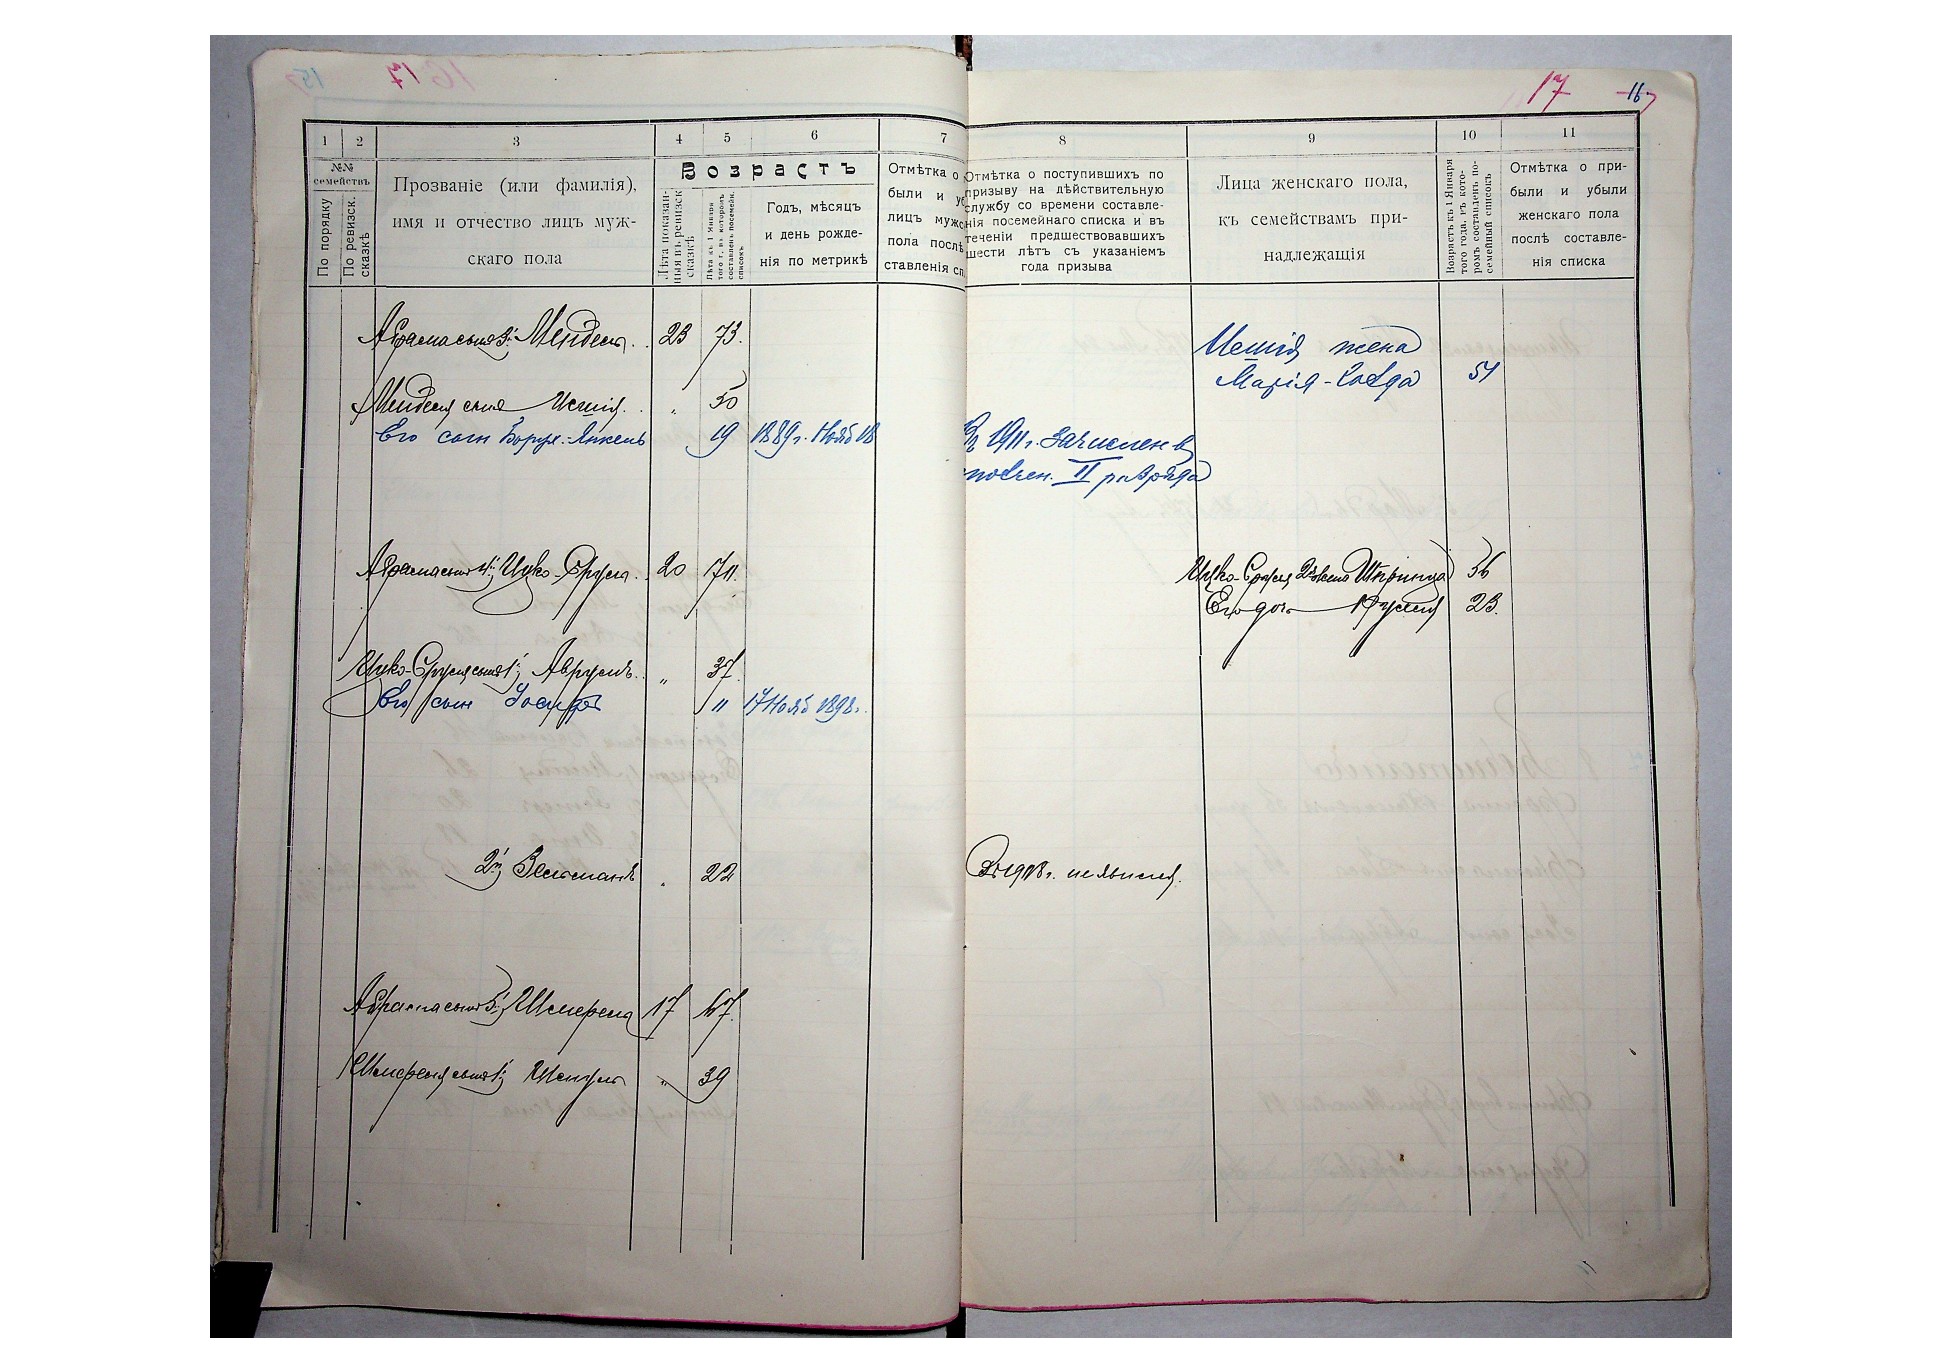 17
17
16
1 2 3 4 5 6 7
№№ семействъ
По порядку
По ревизск. сказкѣ
Прозваніе (или фамилія),
имя и отчество лицъ муж-
скаго пола
Возрастъ
Лѣта показан-
ныя въ ревизск.
сказкѣ
Лѣта къ 1 Января
того г., въ которомъ
составленъ посемейн.
списокъ
Годъ, мѣсяцъ
и день рожде-
нія по метрикѣ
Отмѣтка о
были и уб
лицъ мужс
пола послѣ
ставленія сп.
8 9 10 11
Отмѣтка о поступившихъ по
призыву на дѣйствительную
службу со времени составле-
нія посемейнаго списка и въ
теченіи предшествовавшихъ
шести лѣтъ съ указаніемъ
года призыва
Лица женскаго пола,
къ семействамъ при-
надлежащія
Возрастъ къ 1 Января
того года, въ кото-
ромъ составленъ по-
семейный списокъ
Отмѣтка о при-
были и убыли
женскаго пола
послѣ составле-
нія списка
Абрама сынъ 3й Мендель 23 73.
Менделя сынъ 50
Его сын Борух-Янкель 19 1889 г. Нояб 18
жена
Марія- 51
1911 г. зачислен в
II разряда
Абрама сынъ 4й Ицко-Сруль 20 70.
Ицко-Сруля 2я жена Шпринца 56
Его дочь 23.
Ицко-Сруля сынъ 1й Аврумъ 37.
Его сын Іосиф 17 Нояб 1898 г.
2й Зельманъ 22
не явился.
Абрама сынъ 5й Шмерель 17 67.
Шмереля сынъ 1й 39